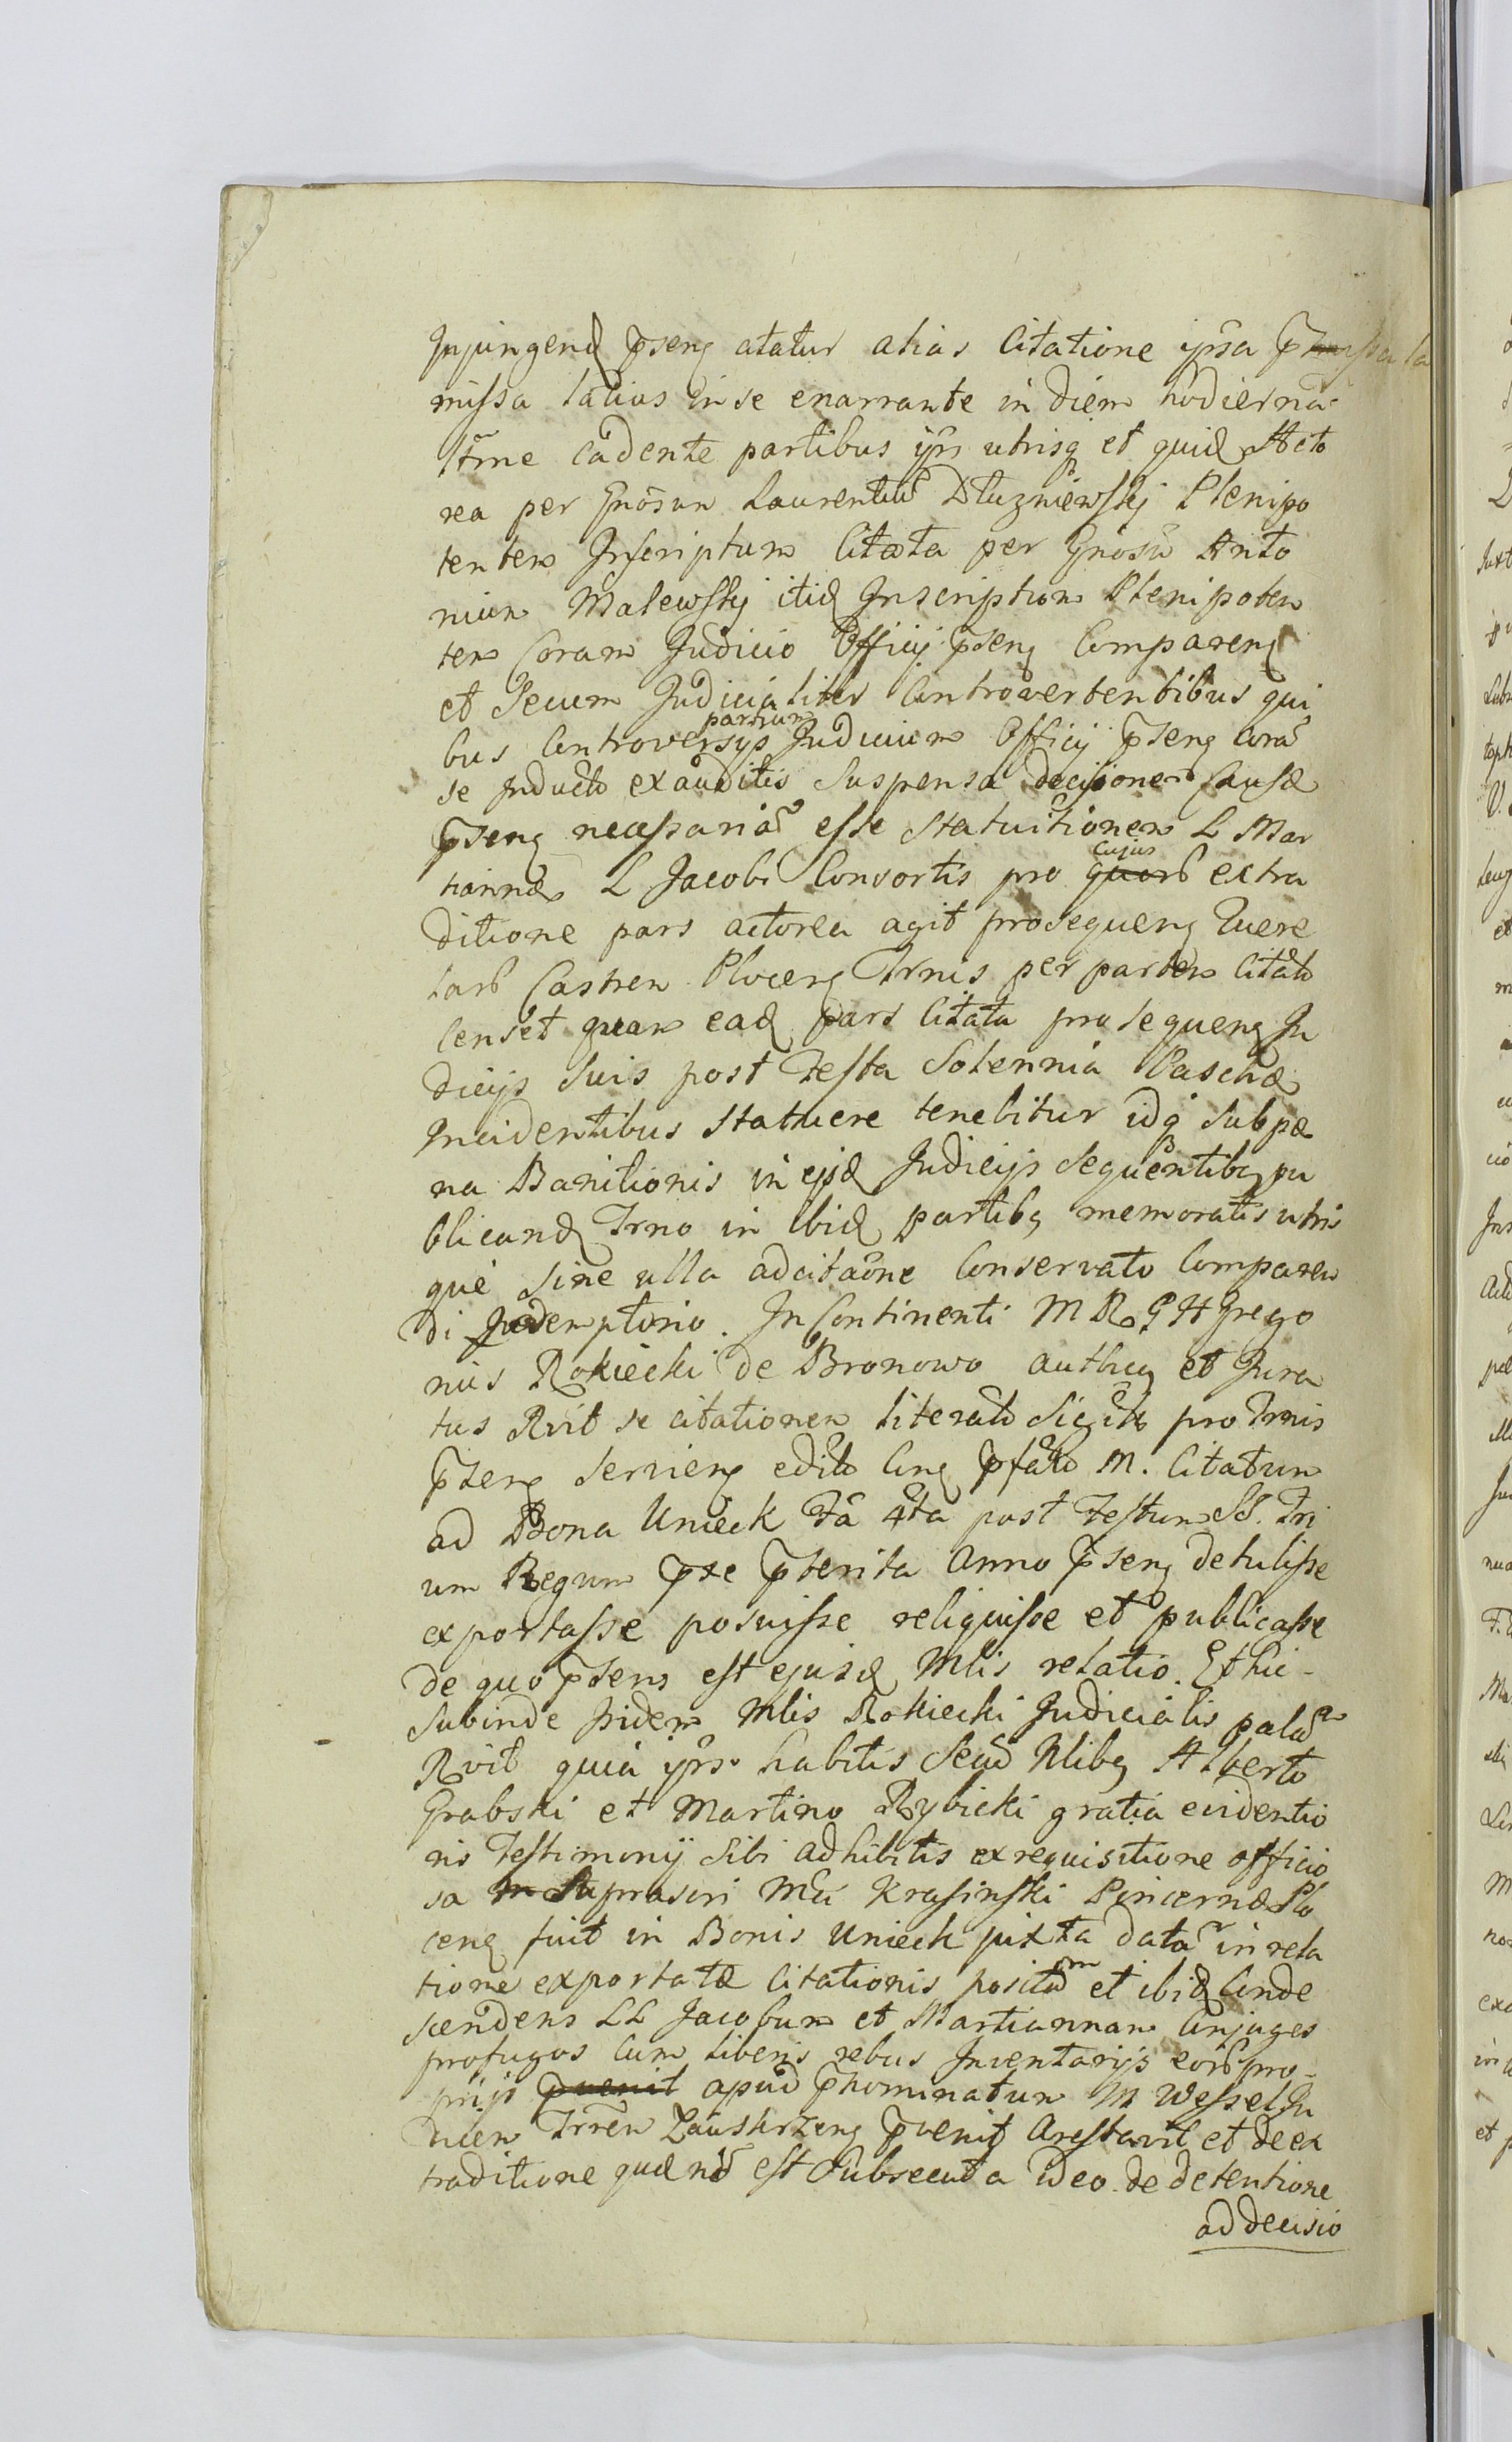 Injungend psens atatur alias Citatione ipsa
missa latius in se enarrante in diem hodierna
trme cadente partibus ipis utrisq et quid Acto
rea per Gnosum Laurentiu Dłuzniewskj Plenipo
tentem Inscriptum Citata per Gnosu Anto
nium Malewskj itid Inscriptum Plenipoten
tem Coram Judicio Officij pseng Compareng
et Secum Judicialiter Controvertentibus qui
bus Controversijs partium Judicium Officij pseng Cora
se Inducto exauditis Suspensa decisione Causæ
pseng necessaria esse Statuitionem L Mar
tiannæ L Jacobi Consortis pro quarb cujus extra
ditione pars actorea agit prosequeng Quere
larb Castren Ploceng Trnis per partem Citato
Censet quam ead pars Citata prosequeng Ju
dicijs Suis post Festa Solennia Paschæ
Incidentibus Statuere tenebitur idq Sub pæ
na Banitionis in ejsd Judicijs Sequentibg pu
blicand Trno in ibid partibg memoratis utris
que Sine ulla adcitaone Conservato Comparen
di peremptorio. In Continenti M R G H Grego
rius Rokiecki de Bronowo autheg et Jura
tus Rvit se citationem literato Sigito pro Trnis
pseng Servieng edito Cing pfato M. Citatum
ad Bona Unieck Fa 4ta post Festum SS. Tri
um Regum pxe pterita Anno pseng detulisse
exportasse posuisse reliquisse et publicasse
de quo psens est ejusd Mlis relatio. Et hic
Subinde Iidem Mlis Rokiecki Judicialis palam
Rvit quia ipse habitis Secu Nlibg Alberto
Grabski et Martino Rybicki gratia evidentio
ris Testimonij Sibi adhibitis ex requisitione officio
sa Suprascri Mci Krasinski Pincernæ Plo
ceng fuit in Bonis Unieck juxta data in rela
tione exportatæ Citationis positam et ibid Conde
scendens LL Jacobum et Martiannam Conjuges
profugos Cum liberis rebus Inventarijs eorb pro
prijs pvenit apud pnominatum M Wessel Ju
dicem Trren Zauskrzeng pvenit Arestavit et de ex
traditione quæ no est Subsecuta ideo de detentione
ad decisio